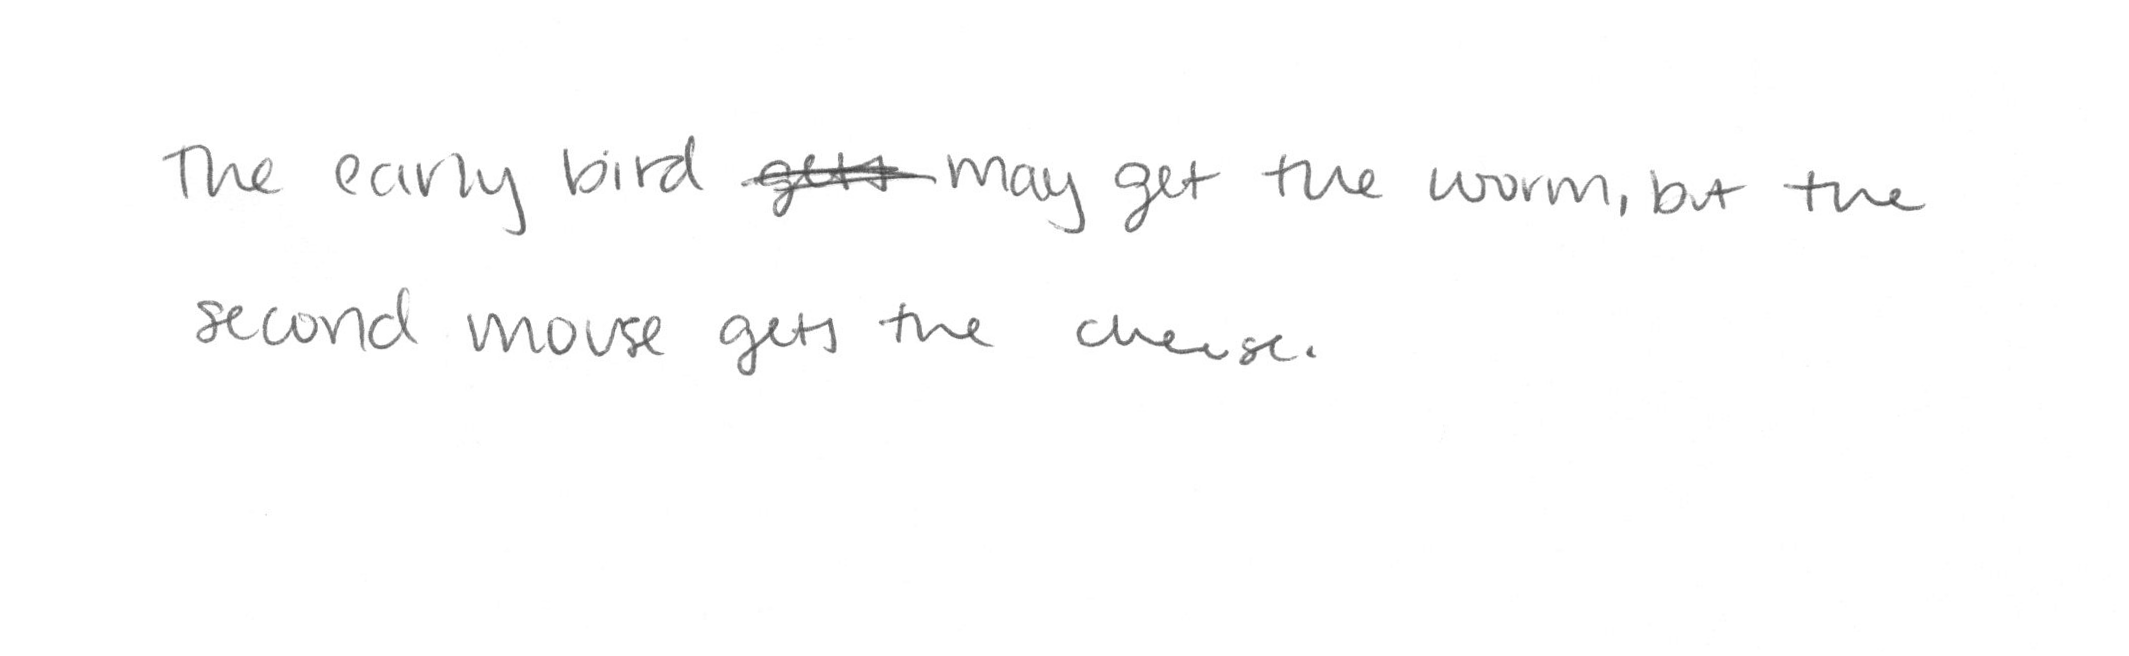 The early bird gets may get the worm, but the
second mouse gets the cheese.